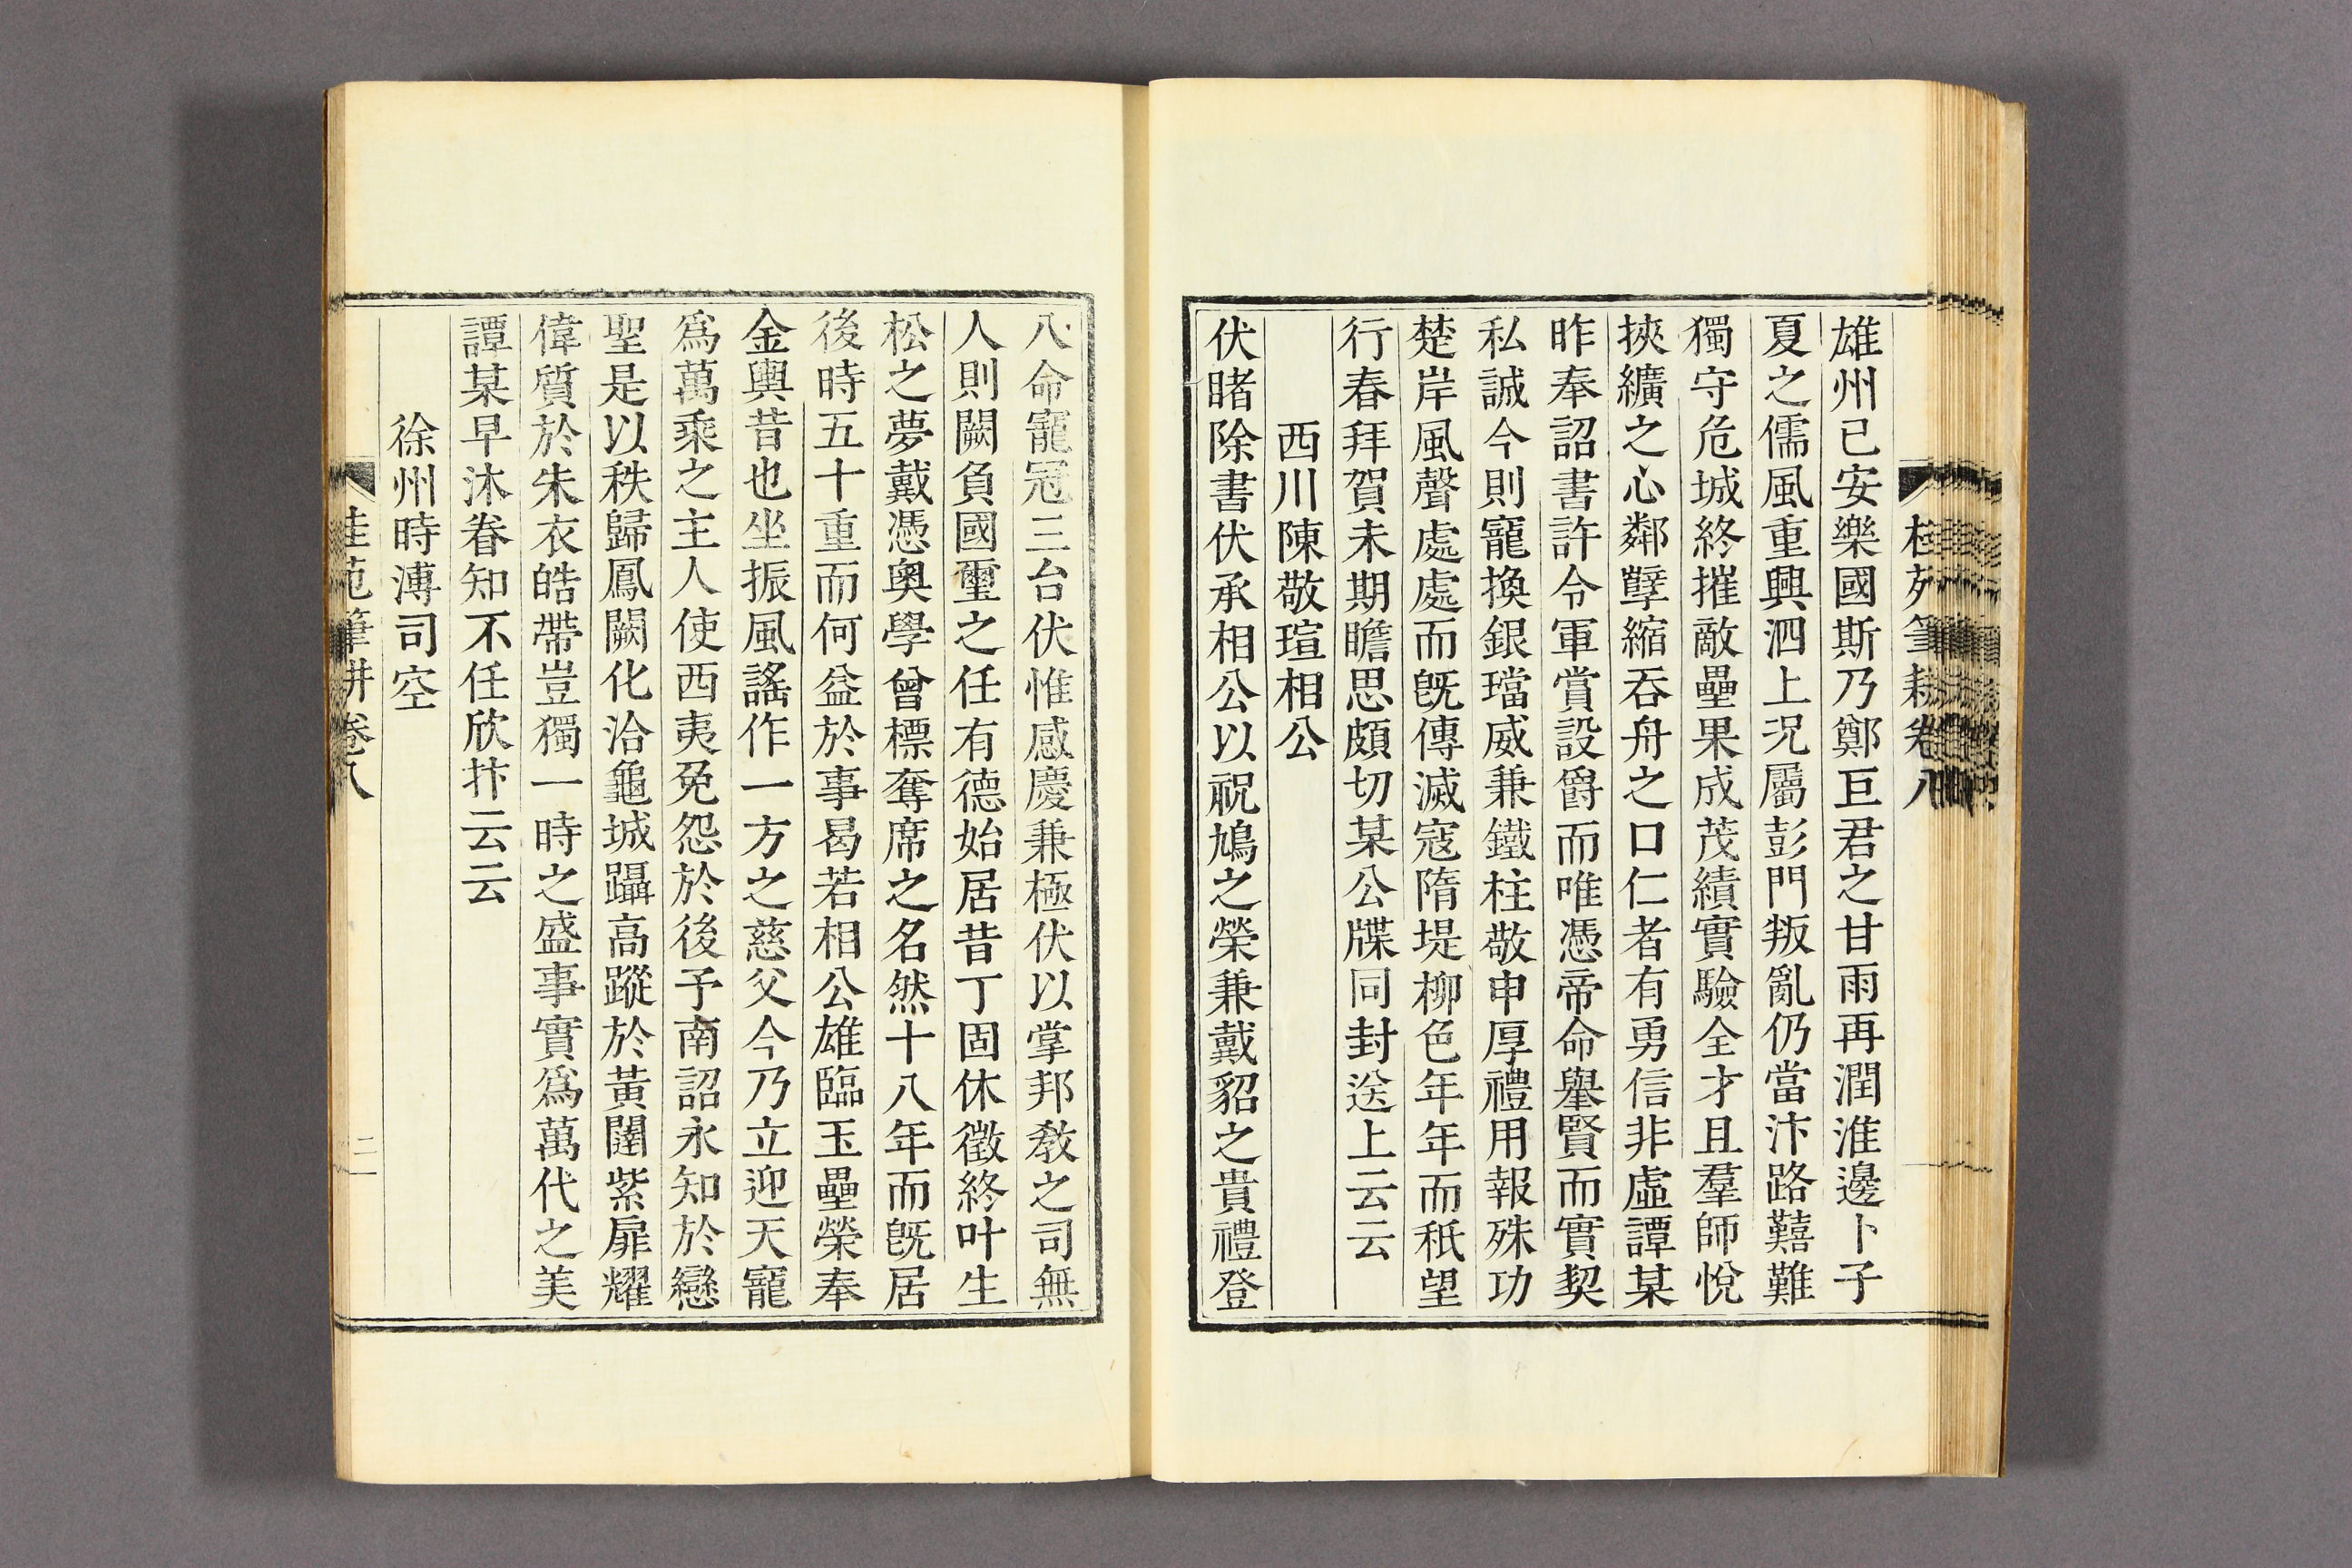 雄州已安樂國斯乃鄭巨君之甘雨再潤淮邊卜子
夏之儒風重興泗上况屬彭門叛亂仍當汴路囏難
獨守危城終摧敵壘果成茂績實驗全才且羣師悅
挾纊之心鄰孽縮吞舟之口仁者有勇信非虛譚某
昨奉詔書許令軍賞設爵而唯憑帝命舉賢而實契
私誠今則寵換銀璫威兼鐵柱敬申厚禮用報殊功
楚岸風聲處處而旣傳滅寇隋堤柳色年年而秖望
行春拜賀未期瞻思頗切某公牒同封送上云云
西川陳敬瑄相公
伏睹除書伏承相公以祝鳩之榮兼戴貂之貴禮登
八命寵冠三台伏惟感慶兼極伏以掌邦教之司無
人則闕負國璽之任有德始居昔丁固休徵終叶生
松之夢戴憑奧學曾標奪席之名然十八年而旣居
後時五十重而何益於事曷若相公雄臨玉壘榮奉
金輿昔也坐振風謠作一方之慈父今乃立迎天寵
爲萬乘之主人使西夷免怨於後予南詔永知於戀
聖是以秩歸鳳闕化洽龜城躡高蹤於黃闥紫扉耀
偉質於朱衣皓帶豈獨一時之盛事實爲萬代之美
譚某早沐眷知不任欣抃云云
徐州時溥司空
桂苑筆耕卷八
二